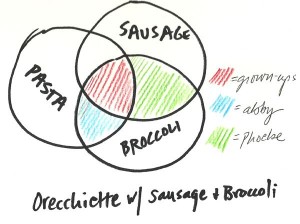 SAUSAGE
PASTA
BROCCOLI
=grown-ups
=abby
=Phoebe
Orecchiette w/ Sausage + Broccoli